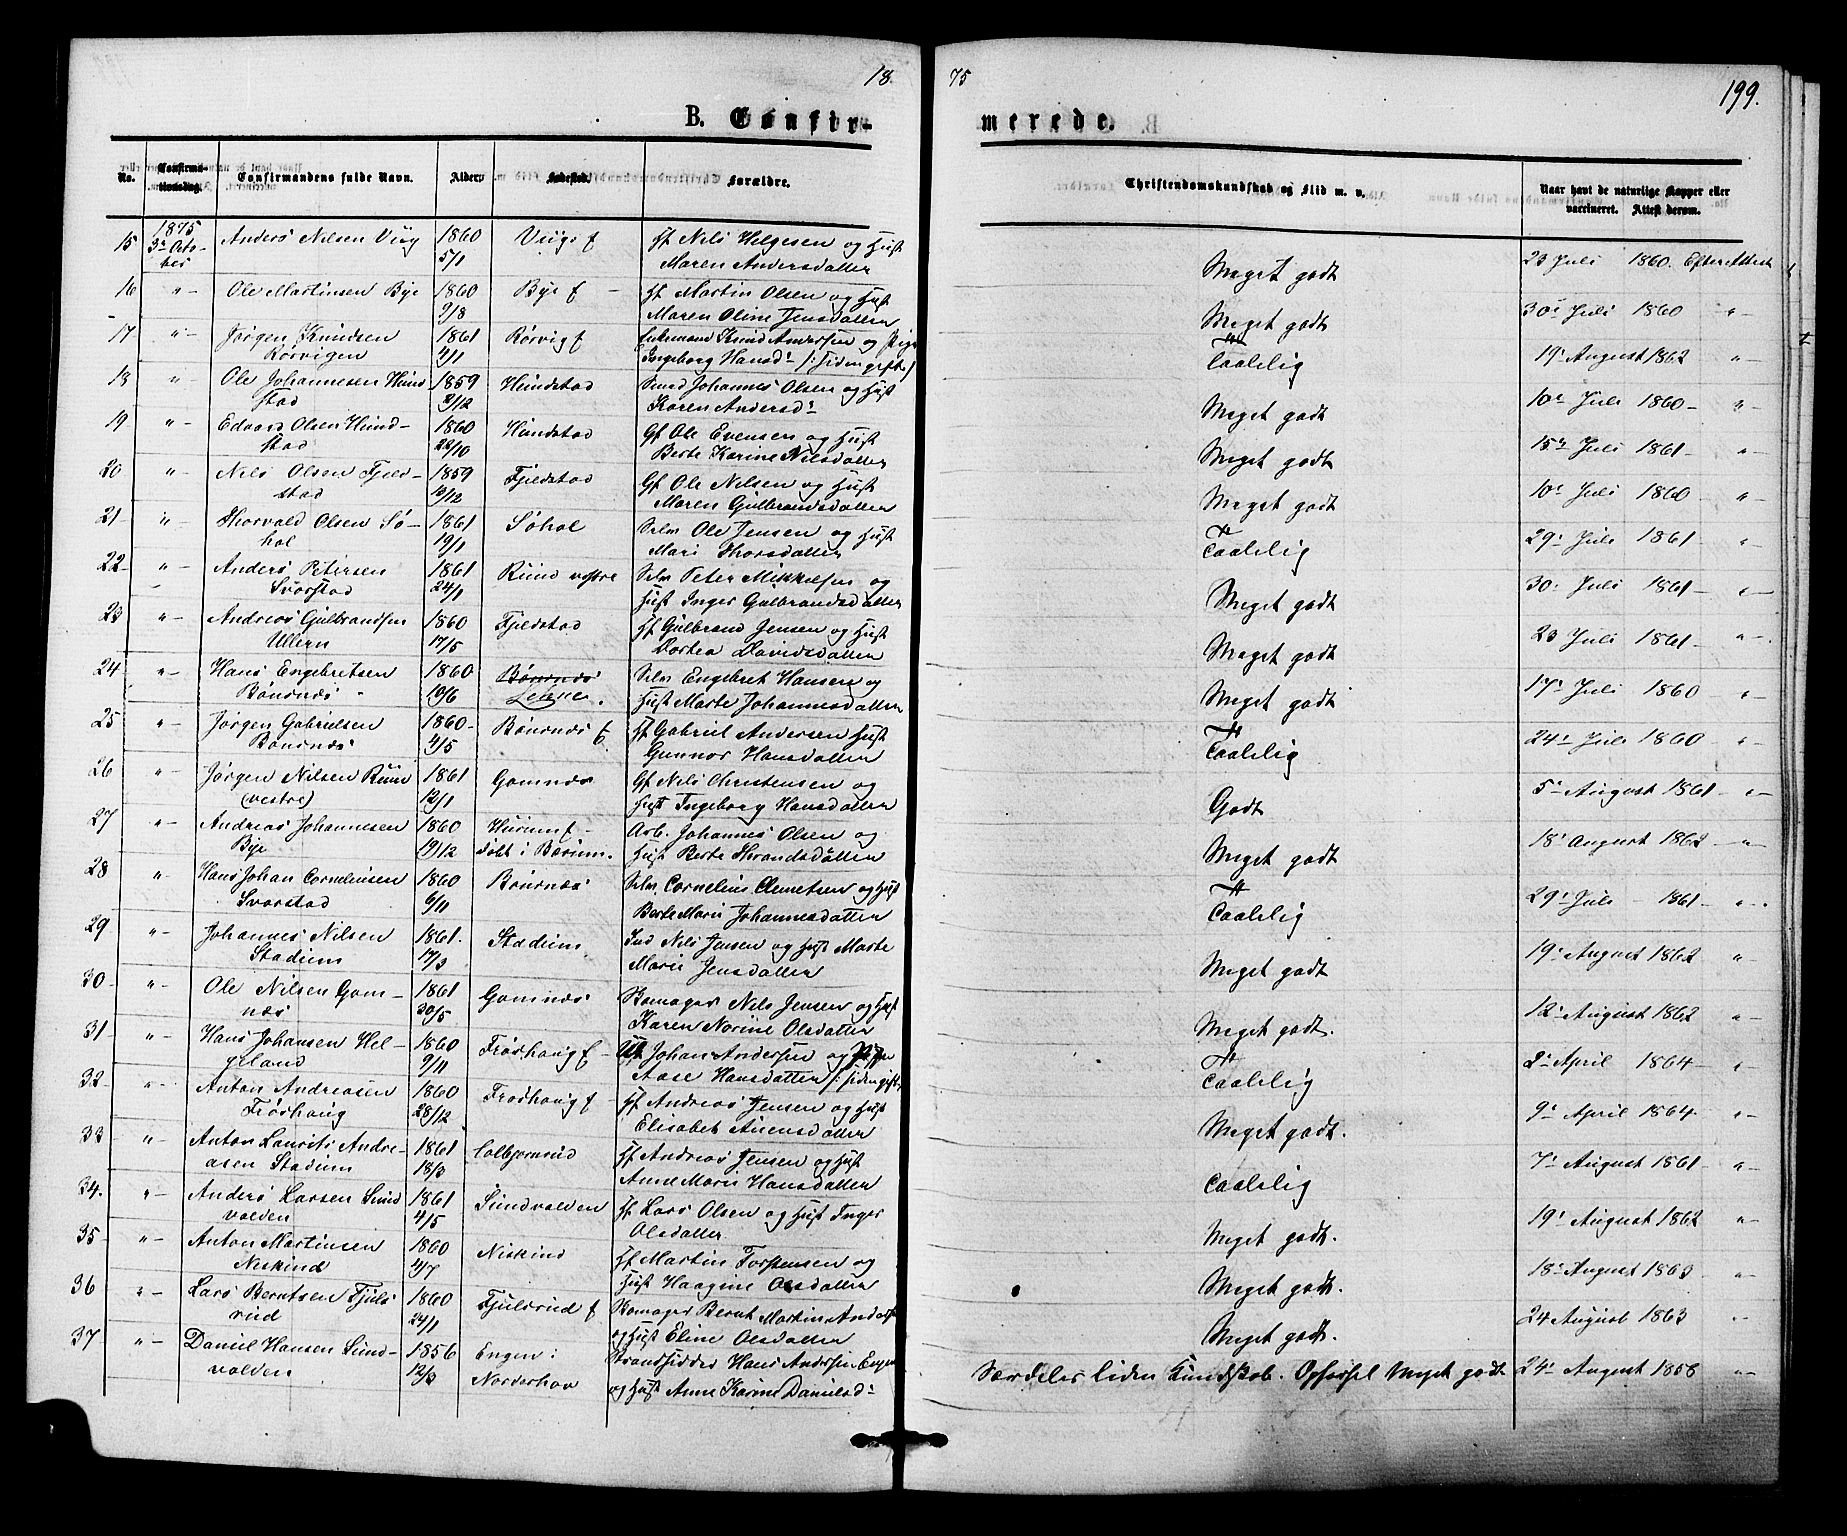 18 75 199.
B. Confirmerede.
No. Confirmationsdag. Confirmandens fulde Navn. Alder. Fødested. Forældre. Christendomskundskab og Flid m. v. Naar havt de naturlige Kopper eller vaccineret. Attest derom.
15 1875 3die October Anders Nilsen Viig 1860 5/1 Viigs f Gf Nils Helgesen og Hust Maren Andersdatter Meget godt 23 Juli 1860. Efter Attest
16 " Ole Martinsen Bye 1860 9/8 Bye f Gf Martin Olsen og Hust Maren Oline Jensdatter Meget godt 30 Juli 1860 "
17 " Jørgen Knudsen Rørvigen 1861 4/1 Rørvig f Enkemand Knud Andersen og Pige Ingeborg Hansd. /: siden gift :/ Taalelig 19 August 1862 "
18 " Ole Johannesen Hundstad 1859 2/12 Hundstad Smed Johannes Olsen og Hust Karen Andersd. Meget godt 10 Juli 1860 "
19 " Edvard Olsen Hundstad 1860 28/10 Hundstad Gf Ole Evensen og Hust Berte Karine Nilsdatter Meget godt 15 Juli 1861 "
20 " Nils Olsen Fjeldstad 1859 12/12 Fjeldstad Gf Ole Nilsen og Hust Maren Gulbrandsdatter Meget godt 10 Juli 1860 "
21 " Thorvald Olsen Søhol 1861 19/1 Søhol Selv. Ole Jensen og Hust Mari Thorsdatter Taalelig 29 Juli 1861 "
22 " Anders Petersen Svarstad 1861 24/1 Rund vestre Selv Peter Mikkelsen og Hust Inger Gulbrandsdatter Meget godt 30 Juli 1861 "
23 " Andreas Gulbrandsen Ullern 1860 17/5 Fjeldstad Gf Gulbrand Jensen og Hust Dortea Davidsdatter Meget godt 23 Juli 1861 "
24 " Hans Engebretsen Bønsnæs 1860 19/6 Bønsnæs Selv Engebret Hansen og Hust Marte Johannesdatter Meget godt 17 Juli 1860 "
25 " Jørgen Gabrielsen Bønsnæs 1860 4/5 Bønsnæs f Gf Gabriel Andersen Hust Gunnor Hansdatter Taalelig 24 Juli 1860 "
26 " Jørgen Nilsen Rund (vestre) 1861 12/1 Gomnæs Gf Nils Christensen og Hust Ingeborg Hansdatter Godt 5 August 1861 "
27 " Andreas Johannesen Bye 1860 19/12 Hurum f døbt i Bærum. Arb. Johannes Olsen og Hust Berte Thrandsdatter Meget godt 18 August 1862 "
28 " Hans Johan Corneliusen Svarstad 1860 6/11 Bønsnæs Selv. Cornelius Clemetsen og Hust Berte Marie Johannesdatter Taalelig 29 Juli 1861 "
29 " Johannes Nilsen Stadum 1861. 17/3 Stadum Ind Nils Jensen og Hust Marte Marie Jensdatter Meget godt 19 August 1862 "
30 " Ole Nilsen Gomnæs 1861 30/5 Gomnæs Skomager Nils Jensen og Hust Karen Norine Olsdatter Meget godt. 12 August 1862 "
31 " Hans Johansen Helgeland 1860 9/11 Frøshoug f Johan Andersen og Pigen Aase Hansdatter /: siden gift Taalelig 2 April 1864 "
32 " Anton Andreasen Frøshoug 1860 28/12 Frøshoug f Gf Andreas Jensen og Hust Elisabet Auensdatter Meget godt. 9 April 1864 "
33 " Anton Laurits Andreasen Stadum 1861 18/3 Colbjørnrud Gf Andreas Jensen og Hust Anne Marie Hansdatter Taalelig 7 August 1861 "
34. " Anders Larsen Sundvolden 1861 4/5 Sundvolden Gf Lars Olsen og Hust Inger Olsdatter Meget godt. 19 August 1862 "
35 " Anton Martinsen Neskind 1860 4/7 Niskind Gf Martin Torstensen og Hust Haagine Olsdatter Meget godt. 18 August 1863 "
36 " Lars Berntsen Fjulsrud 1860 24/1 Fjulsrud f Skomager Bernt Martin Anders og Hust Eline Olsdatter Meget godt. 24 August 1863 "
37 " Daniel Hansen Sundvolden 1856 12/3 Engen i Norderhov Strandsidder Hans Andersen Engen og Hust Anne Karine Danielsd. Særdeles liden Kundskab. Opførsel Meget godt 24 August 1858 "